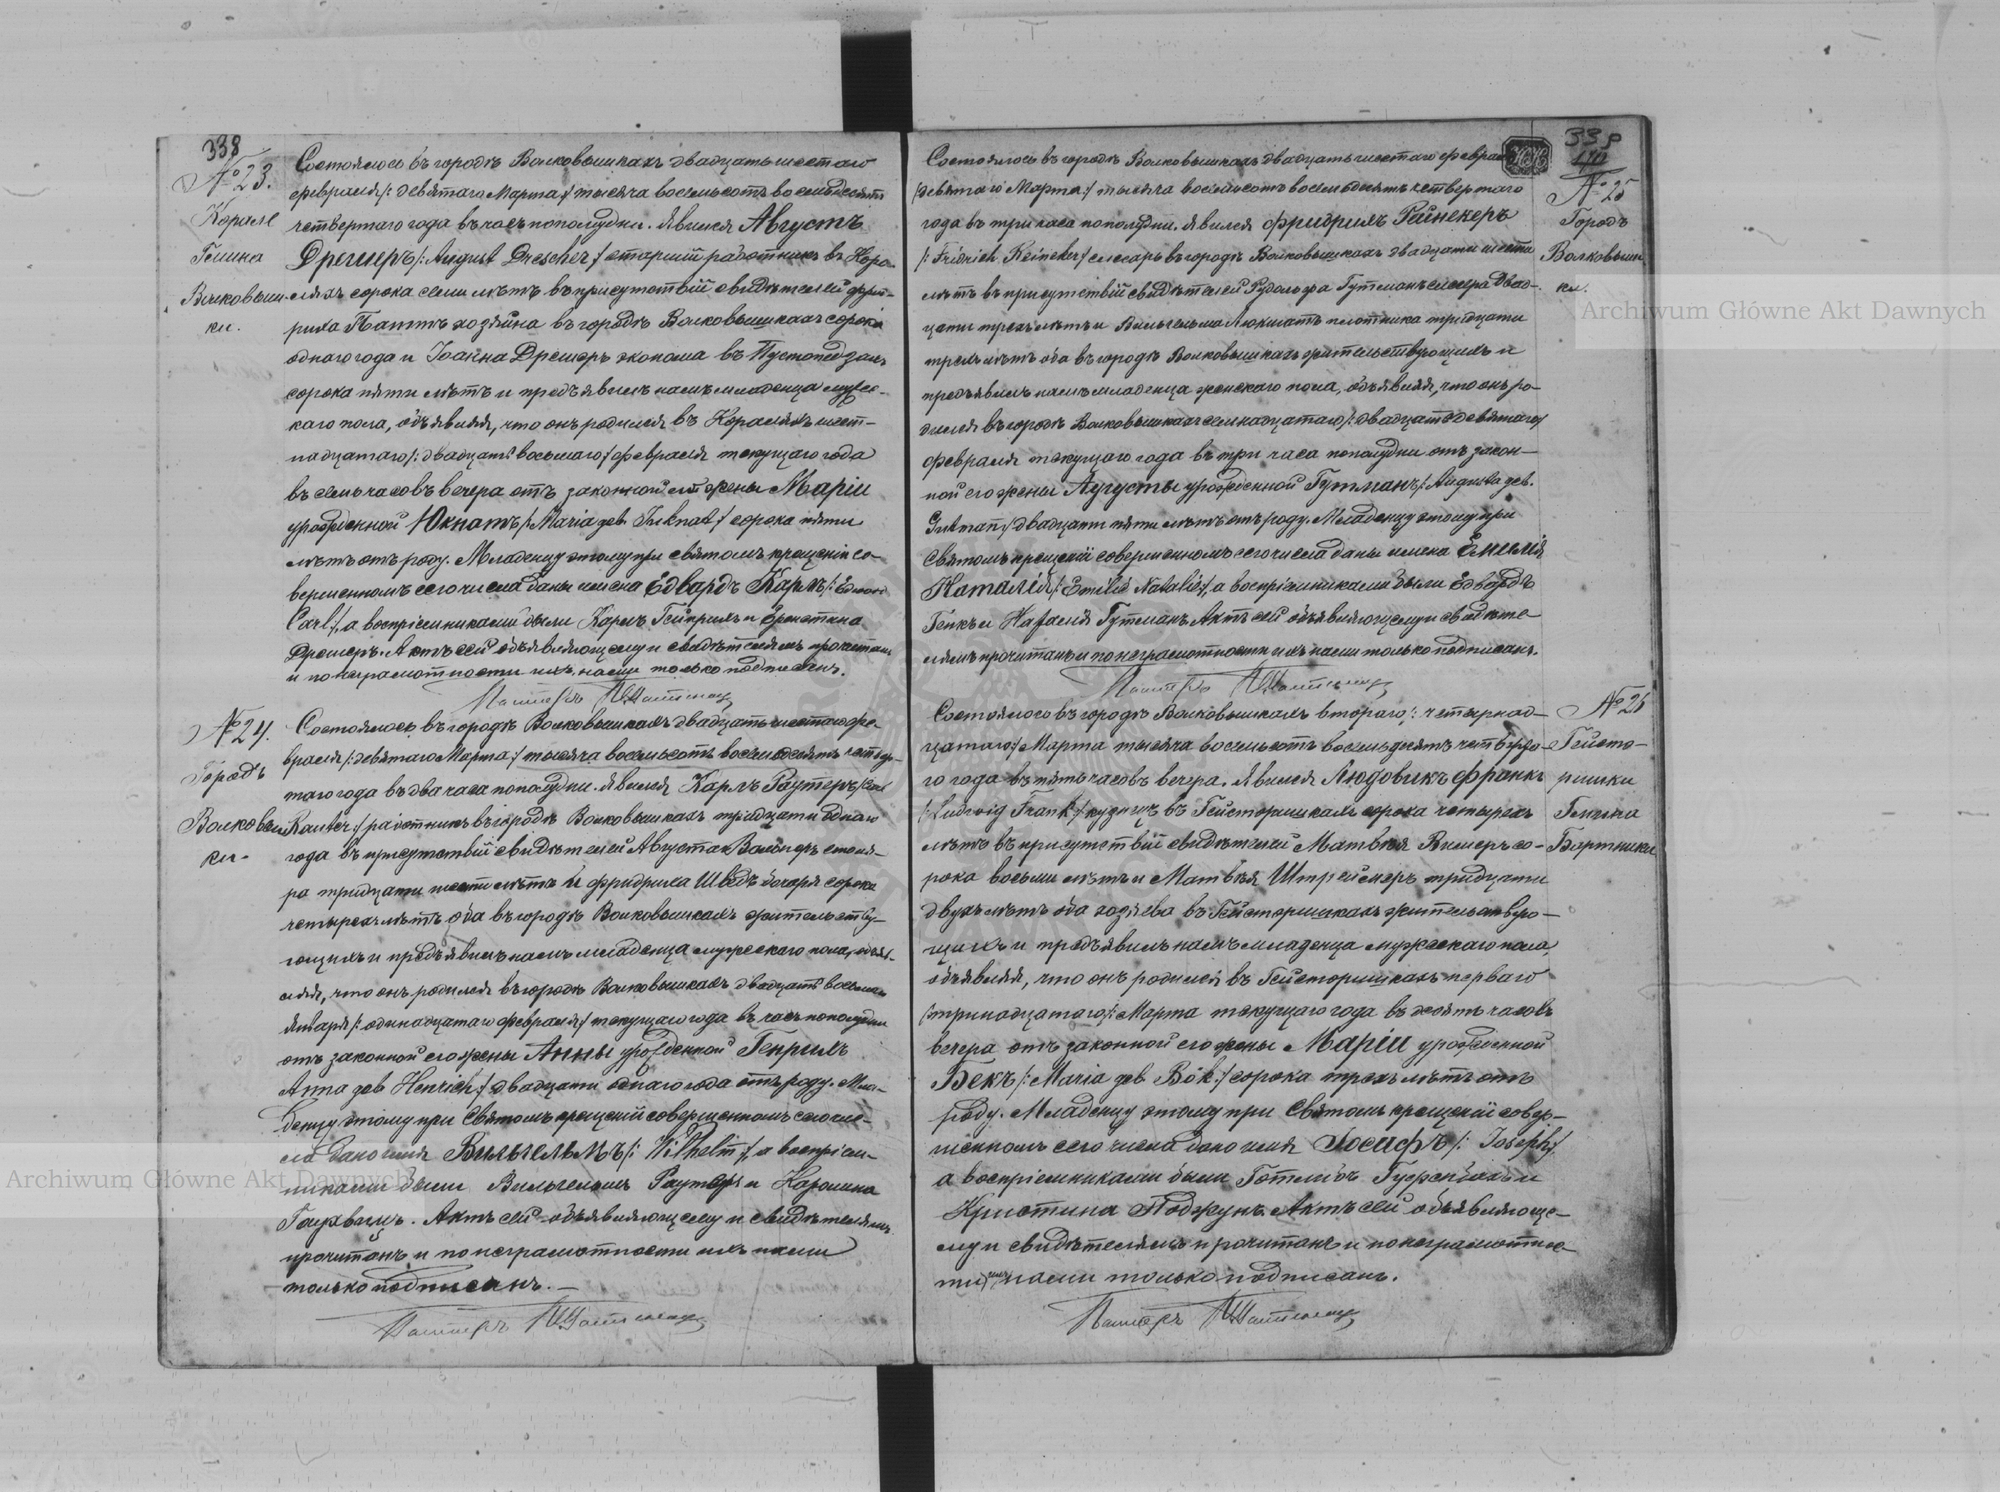 338
№ 23.
Корале
Гмина
Волковыш-
ки.
Состоялось въ городѣ Волковышкахъ двадцать шестаго
февраля /: девятаго Марта :/ тысяча восемьсотъ восемьдесятъ
четвертаго года въ часъ пополудни. Явился Августъ
Дрешеръ /: August Drescher :/ старшій работникъ въ Кора-
ляхъ сорока семи лѣтъ въ присутствіи свидѣтелей Фрид-
риха хозяина въ городѣ Волковышкахъ сорока
одного года и Іоанна Дрешеръ эконома въ
сорока пяти лѣтъ и предъявилъ намъ младенца мужес-
каго пола, объявляя, что онъ родился въ Кораляхъ шест-
надцатаго /: двадцать восьмаго :/ февраля текущаго года
въ семь часовъ вечера отъ законной его жены Маріи
урожденной Юкнатъ /: Maria geb. Juknat :/ сорока пяти
лѣтъ отъ роду. Младенцу этому при святомъ крещеніи со-
вершенномъ сего числа даны имена Едвардъ Карлъ /: Eduard
Carl :/, а воспріемниками были Карлъ Гейнрихъ и Ернестина
Дрешеръ. Актъ сей объявляющему и свидѣтелямъ прочитанъ
и по неграмотности ихъ нами только подписанъ.
Пасторъ
№ 24.
Городъ
Волковыш-
ки.
Состоялось въ городѣ Волковышкахъ двадцать шестаго фе-
враля /: девятаго Марта :/ тысяча восемьсотъ восемьдесятъ четвер-
таго года въ два часа пополудни. Явился Карлъ Раутеръ /: Carl
Rauter :/ работникъ въ городѣ Волковышкахъ тридцати одного
года въ присутствіи свидѣтелей Августа столя-
ра тридцати шести лѣтъ и Фридриха Шведъ бочаря сорока
четырехъ лѣтъ оба въ городѣ Волковышкахъ жительству-
ющихъ и предъявилъ намъ младенца мужескаго пола, объяв-
ляя, что онъ родился въ городѣ Волковышкахъ двадцать восьмаго
января /: одинадцатаго февраля :/ текущаго года въ часъ пополудни
отъ законной его жены Анны урожденной Генрихъ
Anna geb Henrich :/ двадцати одного года отъ роду. Мла-
денцу этому при Святомъ крещеніи совершенномъ сего чис-
ла дано имя Вильгельмъ /: Wilhelm :/, а воспріем-
никами были Вильгельмъ Раутеръ и Каролина
Актъ сей объявляющему и свидѣтелямъ
прочитанъ и по неграмотности ихъ нами
только подписанъ.
Пасторъ
339
170
№ 25
Городъ
Волковыш-
ки.
Состоялось въ городѣ Волковышкахъ двадцать шестаго февраля
/: девятаго Марта :/ тысяча восемьсотъ восемьдесятъ четвертаго
года въ три часа пополудни. Явился Фридрихъ Рейнекеръ
/: Fridrich Reineker :/ слесарь въ городѣ Волковышкахъ двадцати шести
лѣтъ въ присутствіи свидѣтелей Рудольфа Гутманъ двад-
цати трехъ лѣтъ и Вильгельма плотника тридцати
трехъ лѣтъ оба въ городѣ Волковышкахъ жительствующихъ и
предъявилъ намъ младенца женскаго пола, объявляя, что онъ ро-
дился въ городѣ Волковышкахъ семнадцатаго /: двадцать девятаго :/
февраля текущаго года въ три часа пополудни отъ закон-
ной его жены Аугусты урожденной Гутманъ /: Augusta geb.
Gutmañ :/ двадцати пяти лѣтъ отъ роду. Младенцу этому при
Святомъ крещеніи совершенномъ сего числа даны имена Емилія
Наталія /: Emilie Natalie :/, а воспріемниками были Едвардъ
и Наталія Гутманъ. Актъ сей объявляющему и свидѣте-
лямъ прочитанъ и по неграмотности ихъ нами только подписанъ.
Пасторъ
№ 26
Гейсто-
ришки
Гмина
Бартники
Состоялось въ городѣ Волковышкахъ втораго /: четырнад-
цатаго :/ Марта тысяча восемьсотъ восемьдесятъ четверта-
го года въ пять часовъ вечера. Явился Людовикъ Франкъ
/: Ludwig Frank :/ кузнецъ въ Гейсторишкахъ сорока четырехъ
лѣтъ въ присутствіи свидѣтелей Матвѣя со-
рока восьми лѣтъ и Матвѣя тридцати
двухъ лѣтъ оба хозяева въ Гейсторишкахъ жительству-
ющихъ и предъявилъ намъ младенца мужескаго пола,
объявляя, что онъ родился въ Гейсторишкахъ перваго
/: тринадцатаго :/ Марта текущаго года въ десять часовъ
вечера отъ законной его жены Маріи урожденной
Бекъ /: Maria geb Bök :/ сорока трехъ лѣтъ отъ
роду. Младенцу этому при Святомъ крещеніи совер-
шенномъ сего числа дано имя Іосифъ /: Joseph :/
а воспріемниками были Готлибъ и
Кристина Актъ сей объявляюще-
му и свидѣтелямъ прочитанъ и по неграмотнос-
ти ихъ нами только подписанъ.
Пасторъ
Archiwum Główne Akt Dawnych
Archiwum Główne Akt Dawnych